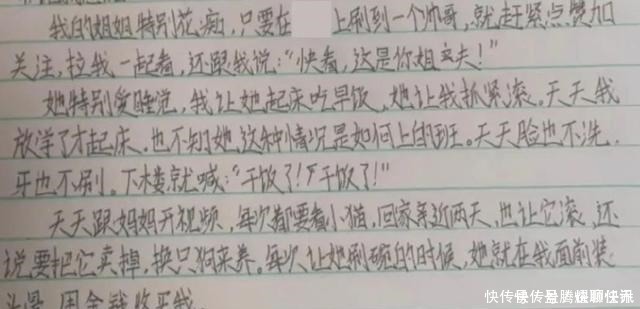 我的姐姐特别花痴,只要在 上刷到一个帅哥,就赶紧点赞加
关注,拉我一起看,还跟我说:“快看,这是你姐夫!”
她特别爱睡觉,我让她起床吃早饭,她让我抓紧滚。天天我
放学了才起床,也不知她这种情况是如何上的班。天天脸也不洗,
牙也不刷。下楼就喊:“干饭了!干饭了!”
天天跟妈妈开视频,每次都要看小猫,回家亲近两天,也让它滚,还
说要把它卖掉,换只狗来养。每次让她刷碗的时候,她就在我面前装
头晕,用金钱收买我
快传号